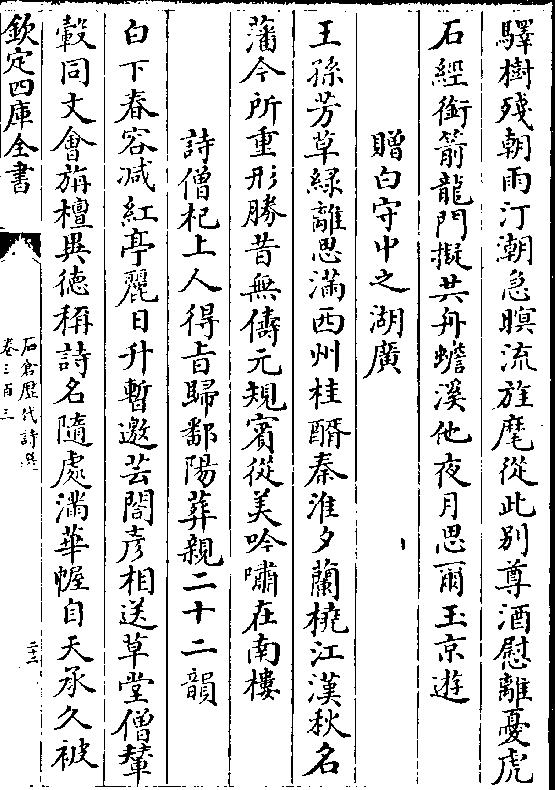 驛樹殘朝雨汀潮急暝流旌麾從此別尊酒慰離憂虎
石經銜箭龍門擬共舟蟾溪他夜月思爾玉京遊
贈白守中之湖廣
王孫芳草緑離思滿西州桂醑秦淮夕蘭橈江漢秋名
藩今所重形勝昔無儔元規賓從美吟嘯在南樓
詩僧杞上人得旨歸鄱陽葬親二十二韻
白下春容減紅亭麗日升暫邀芸閣彥相送草堂僧輦
轂同文會旃檀異德稱詩名隨處滿華幄自天承久被
欽定四庫全書
石倉歷代詩選
卷三百三
二十二